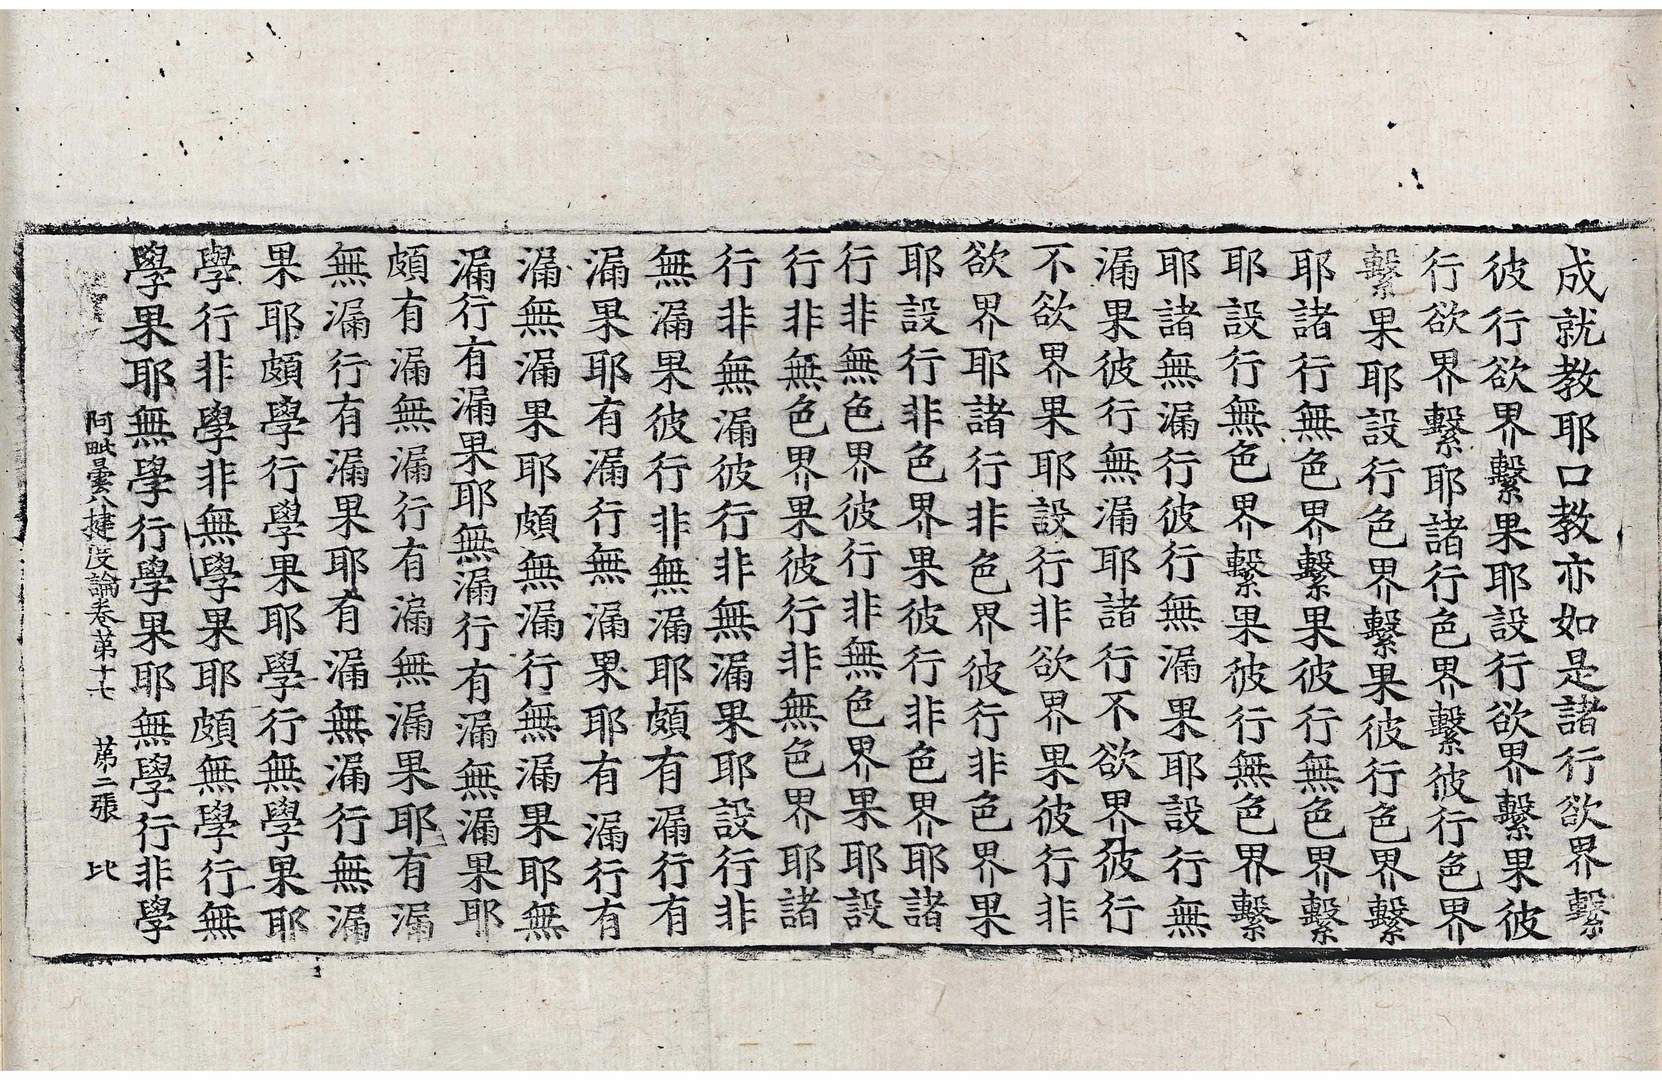 成就教耶口教亦如是諸行欲界繫
彼行欲界繫果耶設行欲界繫果彼
行欲界繫耶諸行色界繫彼行色界
繫果耶設行色界繫果彼行色界繫
耶諸行無色界繫果彼行無色界繫
耶設行無色界繫果彼行無色界繫
耶諸無漏行彼行無漏果耶設行無
漏果彼行無漏耶諸行不欲界彼行
不欲界果耶設行非欲界果彼行非
欲界耶諸行非色界彼行非色界果
耶設行非色界果彼行非色界耶諸
行非無色界彼行非無色界果耶設
行非無色界果彼行非無色界耶諸
行非無漏彼行非無漏果耶設行非
無漏果彼行非無漏耶頗有漏行有
漏果耶有漏行無漏果耶有漏行有
漏無漏果耶頗無漏行無漏果耶無
漏行有漏果耶無漏行有漏無漏果耶
頗有漏無漏行有漏無漏果耶有漏
無漏行有漏果耶有漏無漏行無漏
果耶頗學行學果耶學行無學果耶
學行非學非無學果耶頗無學行無
學果耶無學行學果耶無學行非學
阿毗曇八揵度論卷苐十七　苐二張　比